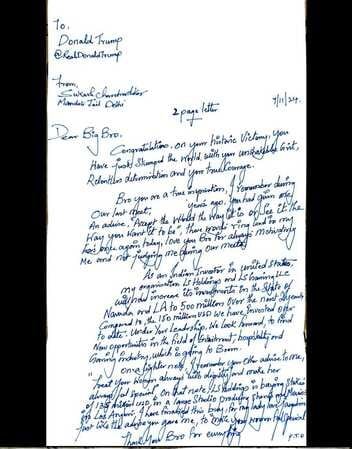 To,
Donald Trump
@RealDonaldTrump
From,
Sukash Chandrashekar
Mandoli Jail Delhi
2 page letter
7/11/24.
Dear Big Bro.
Congratulations, on your Historic Victory, you
Have just Stumped the world with your Grit,
Relentless determination and your true Courage.
Bro you are a true inspiration, I remember during
Our last meet, years ago, you had given me
An advice, "Accept the World the Way it is or See it the
Way you Want it to be", Those words ring in my
ears once again today, love you Bro for always motivating
Me and not judging me during our meets.
As an Indian Investor in United States
my organisation LS Holdings and LS Gaming LLC
will increase its investments in the State of
Nevada and LA to 500 millions Over the next
Compared to, the 150 million USD we have Invested over
to date. Under Your Leadership, We Look forward, to find
New opportunities in the field of Entertainment, hospitality and
Gaming Industry, which is going to Boom.
On a lighter note, I remember your other advice to me,
"treat your Woman always with dignity and make her
always feel Special". On that note, LS Holdings is buying Stakes
of million USD, in a large Studio producing Shows and Movies
in Los Angeles, I have finalised this buy, for my lady love
Just like the advice you gave me, to make your woman feel Special
Thank you Bro for everything
P.T.O